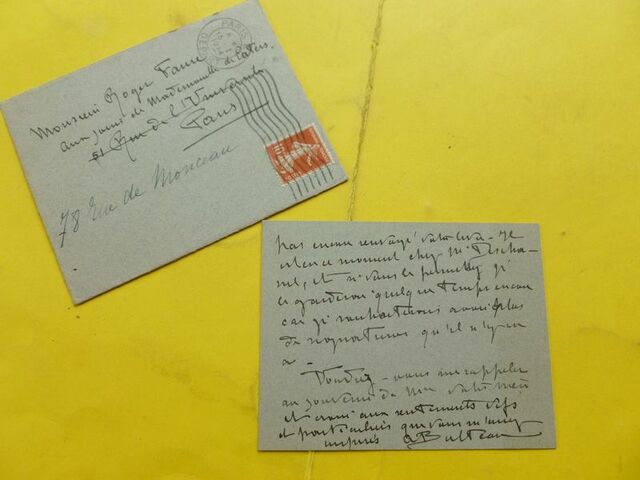 Monsieur Roger Faure
aux soins de Mademoiselle de Caters.
51 Rue de l'Université
Paris
78 rue de Monceau
PARIS
pas encore renvoyé votre livre. Il
est en ce moment chez M. Descha-
nel, et si vous le permettez je
le garderai quelque temps encore
car je souhaiterais avoir plus
de signatures qu'il n'y en
a -
Voudrez-vous me rappeler
au souvenir de
et croire aux sentiments vifs
et particuliers que vous m'avez
inspirés